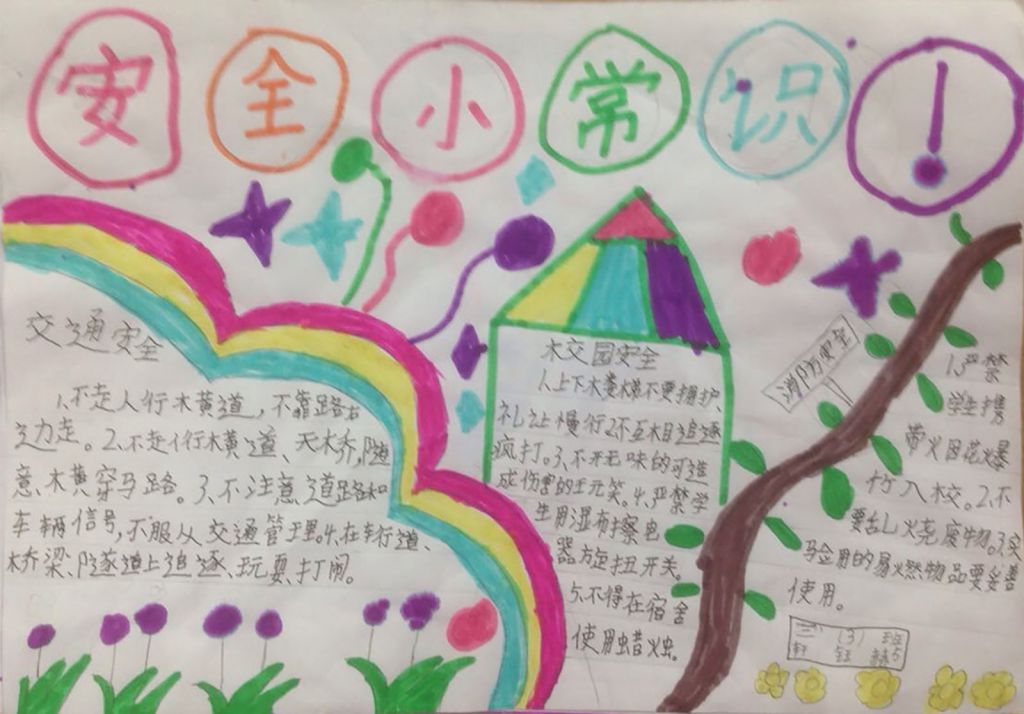 安全小常识!
交通安全
1.不走人行木黄道,不靠路右
边走。2.不走人行木黄道、天木乔,随
意木黄穿马路。3.不注意道路和
车辆信号,不服从交通管理。4.在车行道、
桥梁、隧道上追逐、玩耍、打闹。
校园安全
1.上下木娄梯不要拥护、
礼让慢行2.不互相追逐
疯打。3.不开无味的可造
成伤害的玩笑。4.严禁学
生用湿布擦电
器旋扭开关。
5.不得在宿舍
使用蜡烛。
消防安全
1.严禁
学生携
带火因花爆
竹入校。2.不
要乱火尧废物。3.实
验用的易燃物品要妥善
使用。
三(3)班